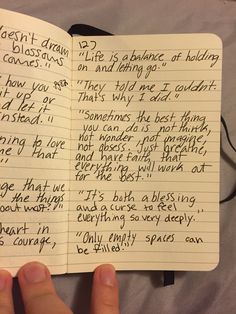 doesn't dream
blossoms
comes."
how you
it up or
and let it
instead."
ning to love
me that
age that we
the things
about most?"
heart in
s courage,
12)
"Life is a balance of holding
on and letting go."
"They told me I couldn't.
That's why I did."
"Sometimes the best thing
you can do is not think,
not wonder, not imagine,
not obsess. Just breathe,
and have faith that
everything will work out
for the best."
"It's both a blessing
and a curse to feel
everything so very deeply.
"Only empty spaces can
be filled."